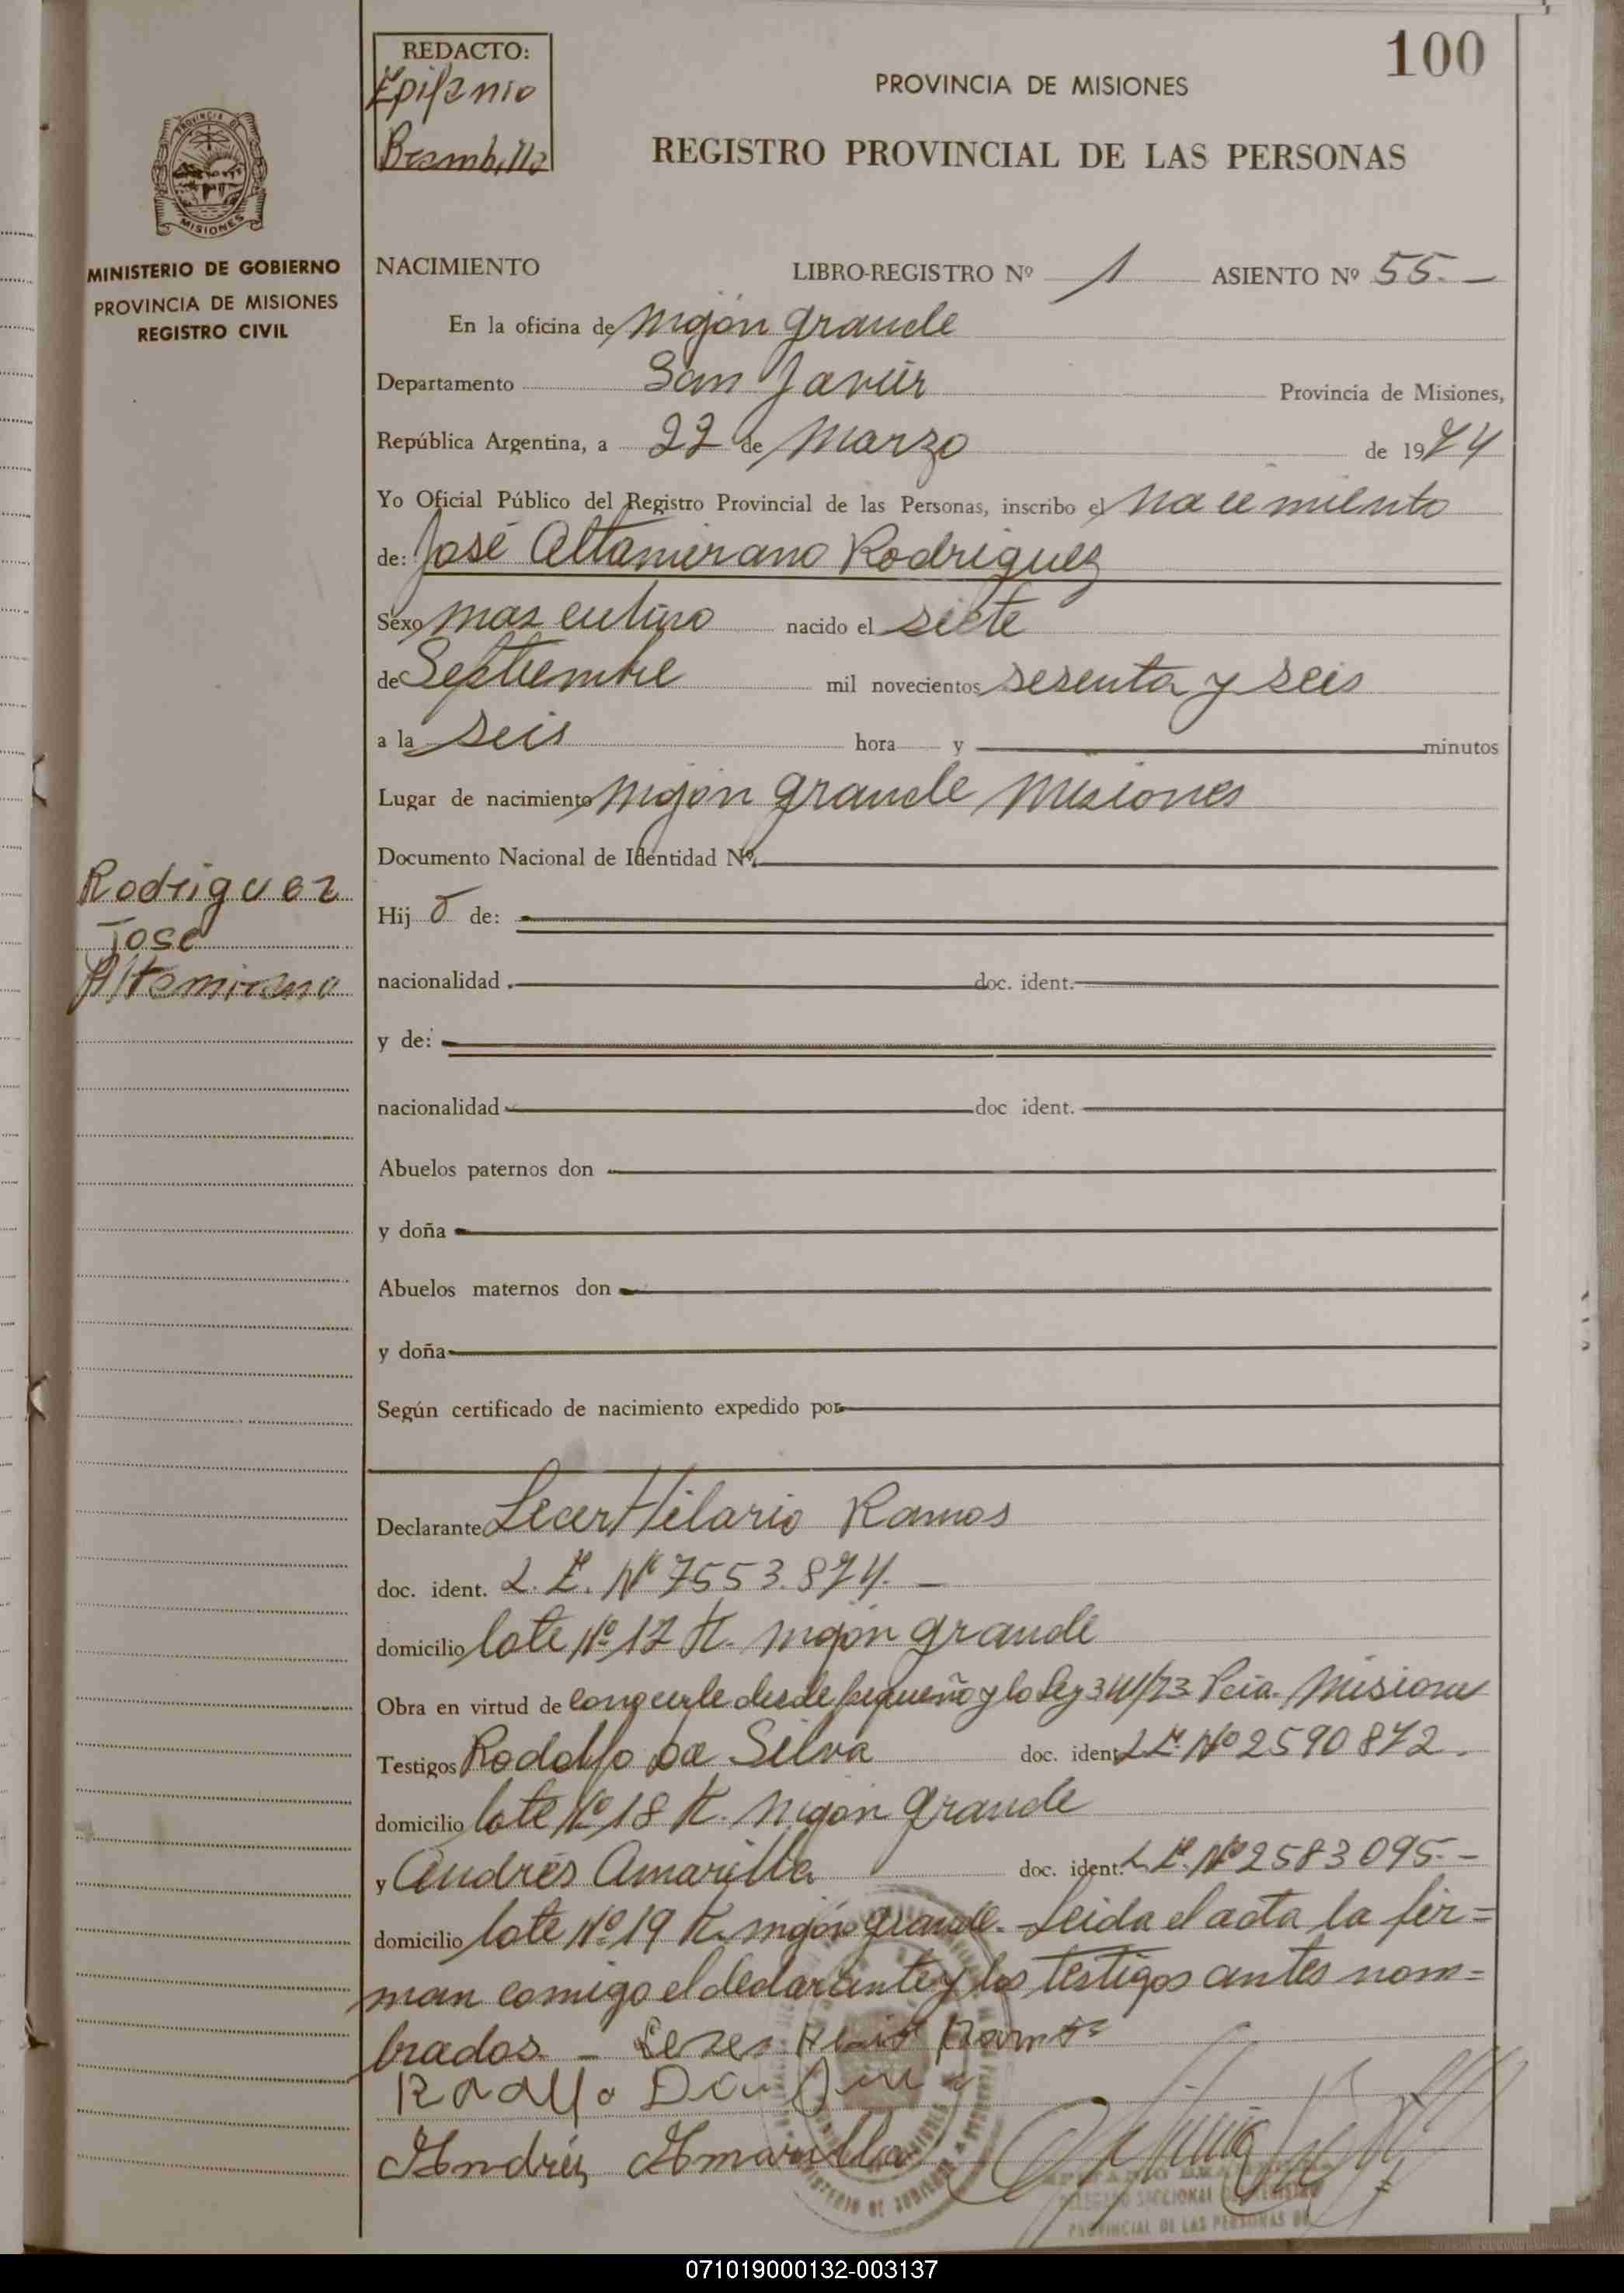 100
REDACTO:
Epifanio
Brambilla
PROVINCIA DE MISIONES
REGISTRO PROVINCIAL DE LAS PERSONAS
PROVINCIA DE
MISIONES
MINISTERIO DE GOBIERNO
PROVINCIA DE MISIONES
REGISTRO CIVIL
NACIMIENTO LIBRO-REGISTRO Nº 1 ASIENTO Nº 55.—
En la oficina de Mojón grande
Departamento San Javier Provincia de Misiones,
República Argentina, a 22 de Marzo de 1974
Yo Oficial Público del Registro Provincial de las Personas, inscribo el Nacimiento
de: José Altamirano Rodriguez
Sexo masculino nacido el siete
de Septiembre mil novecientos sesenta y seis
a la seis hora y minutos
Lugar de nacimiento Mojón grande Misiones
Documento Nacional de Identidad Nº
Rodriguez
Jose
Altamirano
Hij o de:
nacionalidad doc. ident.
y de:
nacionalidad doc ident.
Abuelos paternos don
y doña
Abuelos maternos don
y doña
Según certificado de nacimiento expedido por
Declarante Hilario Ramos
doc. ident. L. E. Nº 7553.874.—
domicilio lote Nº 17 Mojón grande
Obra en virtud de conocerle desde pequeño y la Ley 341/73 Pcia. Misiones
Testigos Rodolfo Da Silva doc. ident. L.E. Nº 2590872.
domicilio lote Nº 18 Mojón grande
y Andrés Amarilla doc. ident. L.E. Nº 2583095.—
domicilio lote Nº 19 Mojón grande.- Leida el acta la fir=
man comigo el declarante y los testigos antes nom=
brados. —
Andrés Amarilla
DELEGADO SECCIONAL DEL REGISTRO
PROVINCIAL DE LAS PERSONAS
071019000132-003137